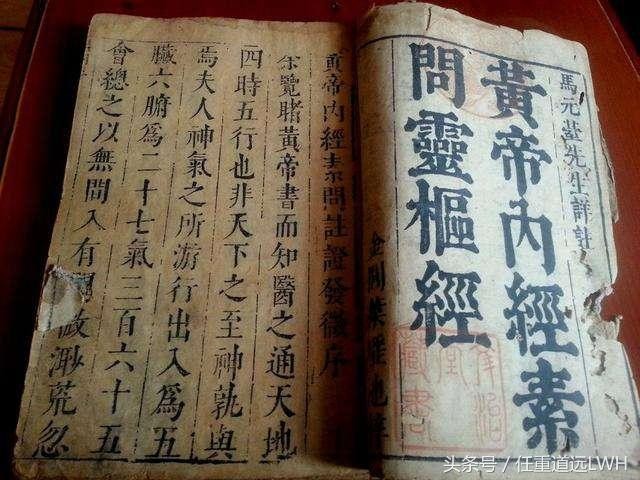 馬元臺先生詳註
黃帝內經素
問靈樞經
藏書
黃帝內經素問註證發微序
余覽睹黃帝書而知醫之通天地
四時五行也非天下之至神孰與
焉夫人神氣之所游行出入為五
臟六腑為二十七氣三百六十五
會總之以無間入有間故渺荒忽
头条号／任重道远LWH